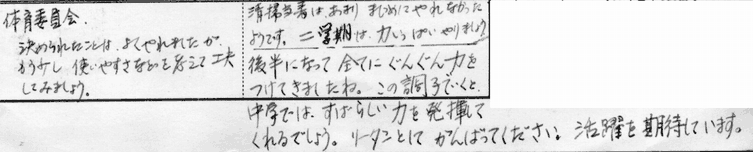 体育委員会.
決められたことは、よくやれましたが、
もう少し 使いやすさなどを考えて工夫
してみましょう。
清掃当番は、あまり まじめにやれなかった
ようです。二学期は、力いっぱいやりましょう
後半になって 全てにぐんぐん力を
つけてきましたね。この調子でいくと、
中学では、すばらしい力を発揮して
くれるでしょう。リーダーとして がんばってください。活躍を期待しています。